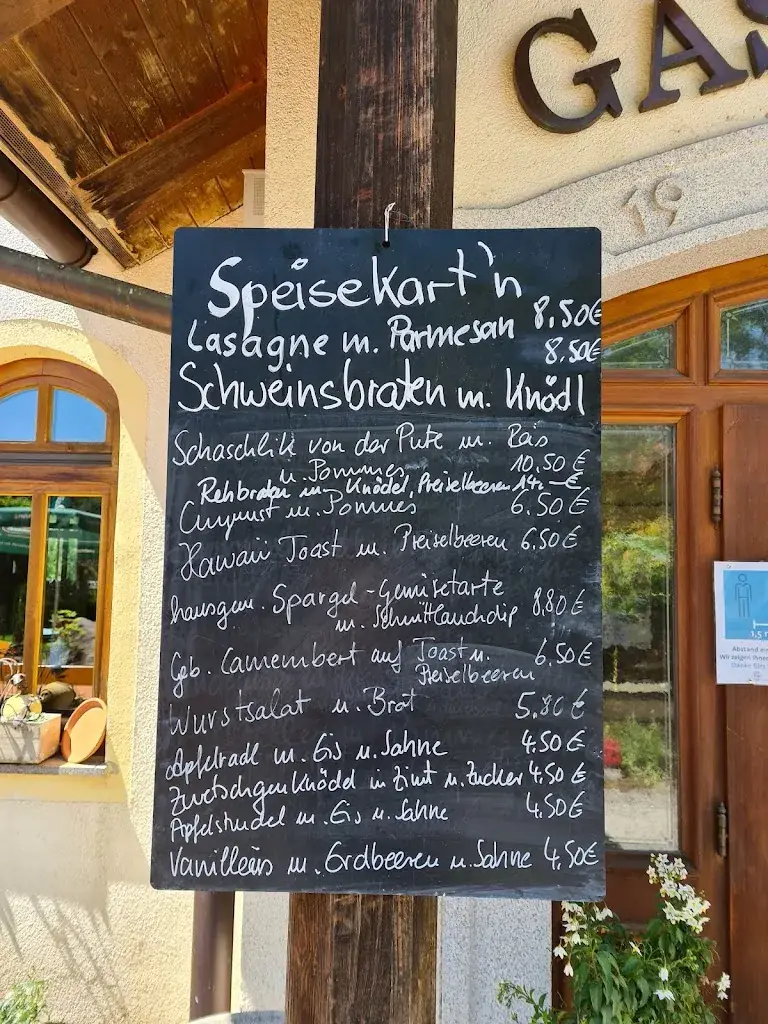 GAS
19
Speisekart'n
Lasagne m. Parmesan 8,50€
8,50€
Schweinsbraten m. Knödl
Schaschlik von der Pute m. Reis
u. Pommes 10,50€
Rehbraten m. Knödel, Preiselbeeren 14.-€
Currywurst m. Pommes 6,50€
Hawaii Toast m. Preiselbeeren 6,50€
hausgem. Spargel-Gemüsetarte
m. Schnittlauchdip 8,80€
Geb. Camembert auf Toast u. 6,50€
Preiselbeeren
Wurstsalat u. Brot 5,80€
Apfelradl m. Eis u. Sahne 4.50€
Zwetschgenknödel in Zimt u. Zucker 4.50€
Apfelstrudel m. Eis u. Sahne 4,50€
Vanilleeis m. Erdbeeren u. Sahne 4,50€
1,5 m